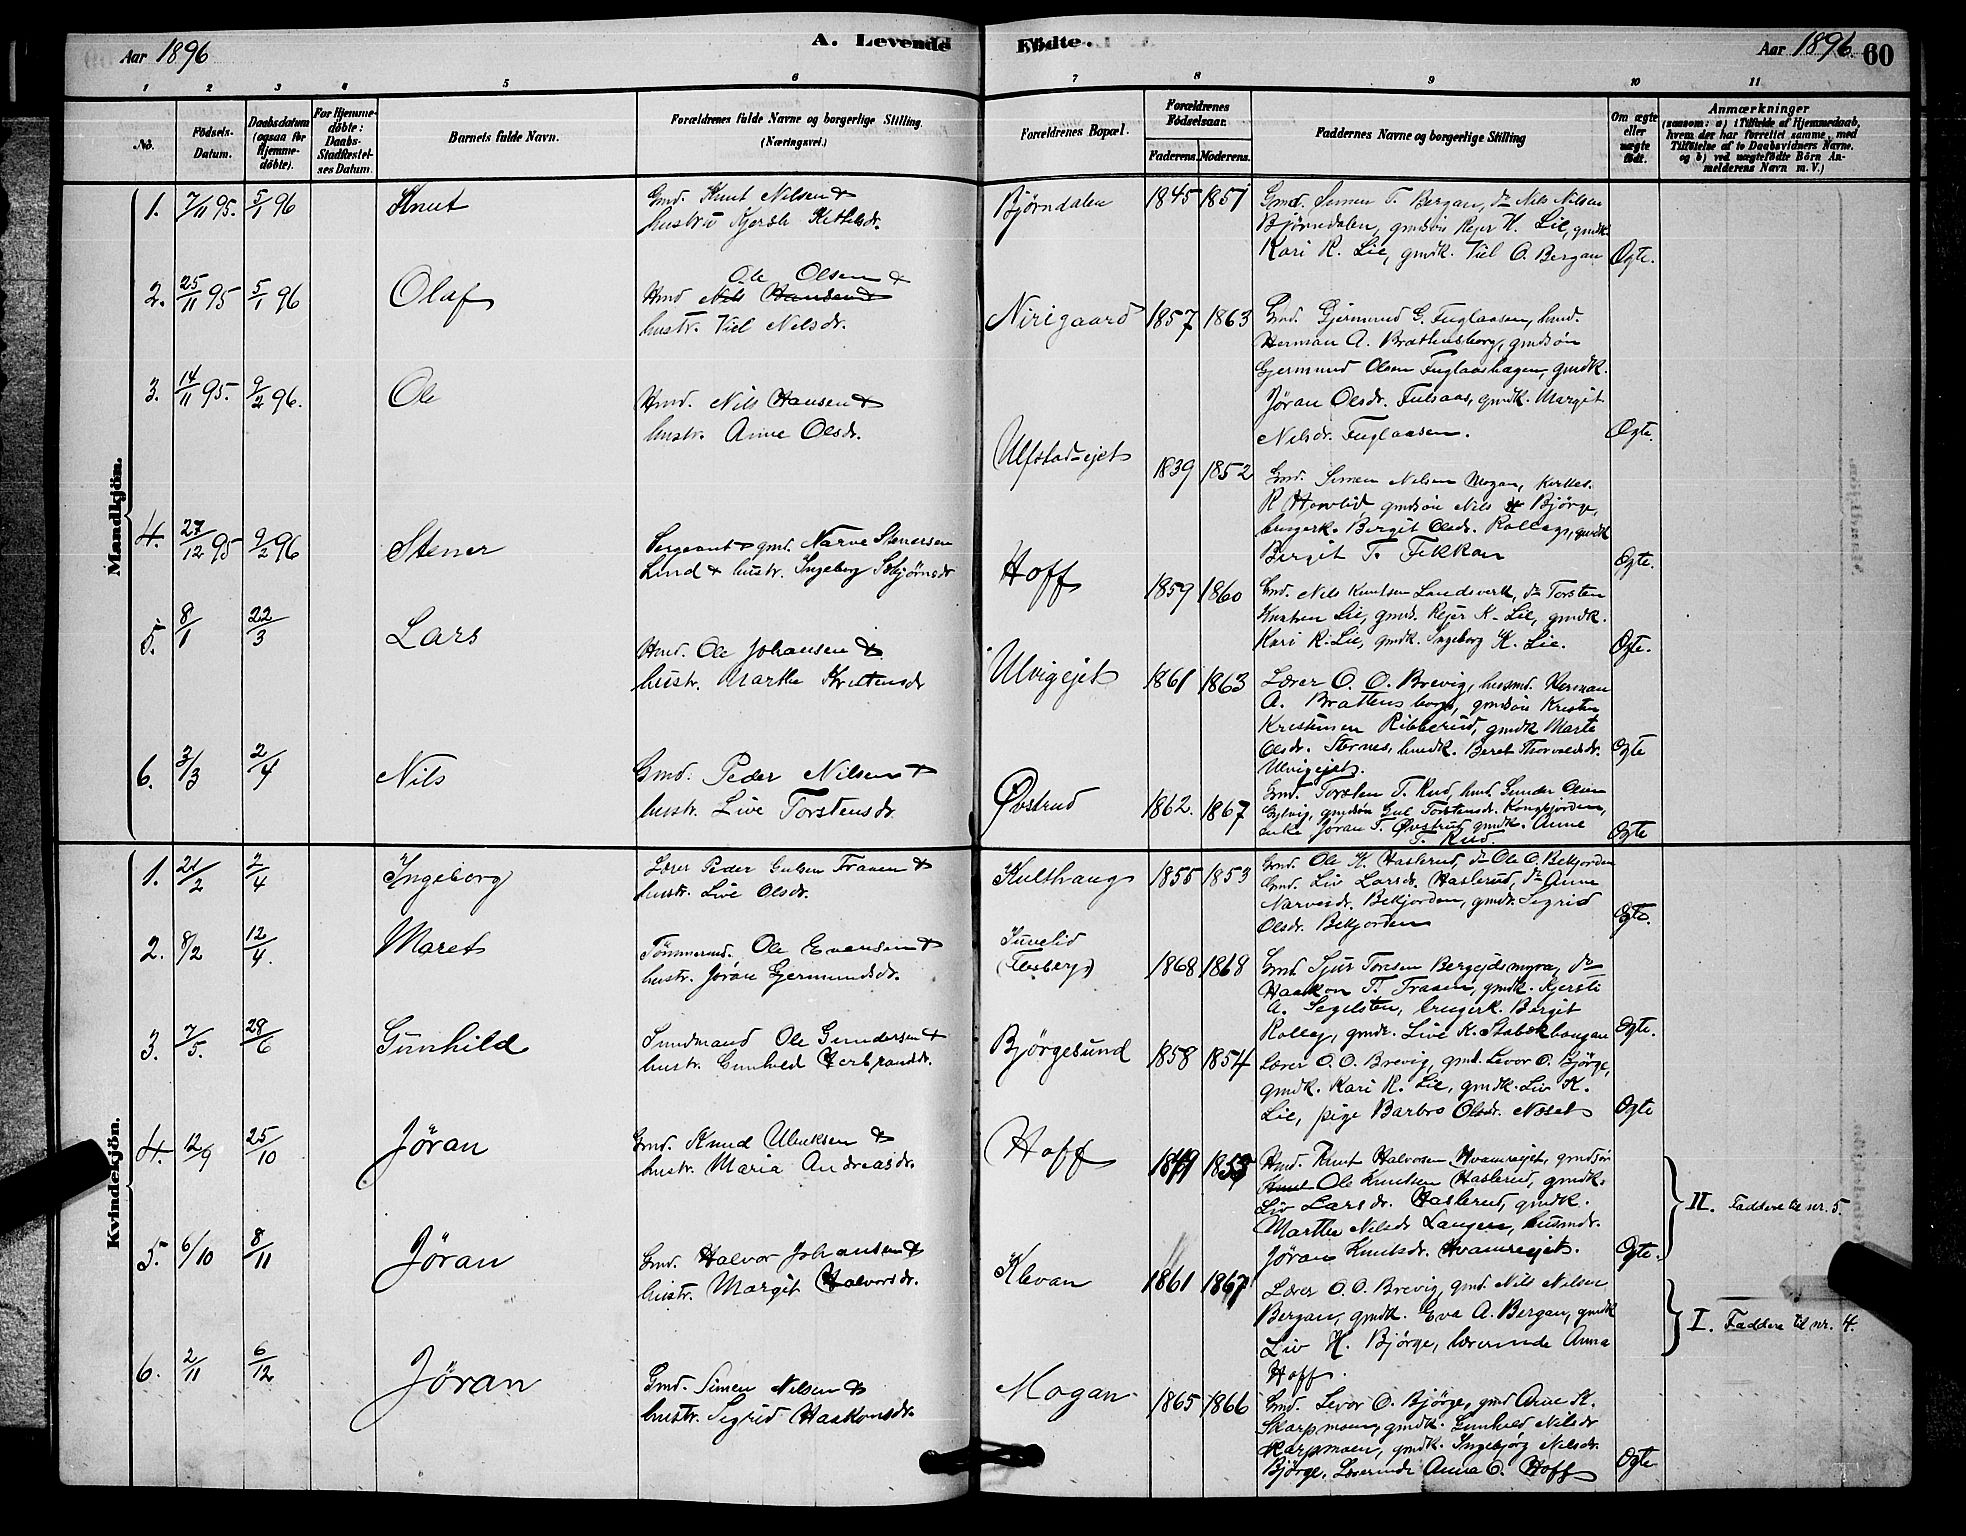 Aar 1896
A. Levende Födte.
Aar 1896. 60
1 2 3 4 5 6 7 8 9 10 11
No.
Födsels-Datum.
Daabsdatum (ogsaa for Hjemme-döbte).
For Hjemme-döbte: Daabs-Stadfæstel-ses Datum.
Barnets fulde Navn.
Forældrenes fulde Navne og borgerlige Stilling.
(Næringsvei.)
Forældrenes Bopæl.
Forældrenes Födselsaar.
Faderens. Moderens.
Faddernes Navne og borgerlige Stilling
Om ægte eller uægte født.
Anmærkninger
(saasom: a) i Tilfælde af Hjemmedaab,
hvem der har forrettet samme, med
Tilföielse af to Daabsvidners Navne,
og b) ved uægtefödte Börn An-
melderens Navn m. V.)
Mandkjön.
1. 7/11 95. 5/1 96 Knut
Gmd. Knut Nilsen &
hustru Kjersti Kittilsdr.
Bjørndalen 1845 1851
Gmd. Simen T. Bergan, do Nils Nilsen
Bjørndalen, gmdsøn Rejer H. Lie, gmdk.
Kari R. Lie, gmdk. Viel O. Bergan Ægte.
2. 25/11 95 5/1 96 Olaf
Ole Olsen &
Hmd Nils Hansen &
hustr. Viel Nilsdr.
Nirigaard 1857 1863
Gmd. Gjermund G. Fuglaasen, hmd.
Herman A. Bratthensborg, gmdsøn
Gjermund Olsen Fuglaashagen, gmdk.
Jöran Olsdr. Fulsaas, gmdk. Margit
Nilsdr. Fuglaasen. Ægte.
3. 14/11 95. 9/2 96. Ole
Hmd. Nils Hansen &
hustr. Anne Olsdr.
Ulfstad-ejet 1839 1852
Gmd. Simen Nilsen Mogan, Kirkes.
R Hovlid, gmdsøn Nils Bjørge,
brugerk. Birgit Olsdr. Rollag, gmdk
Birgit T. Fekkan Ægte.
4. 27/12 95 9/2 96 Stener
Sergeant & gmd. Narve Stenersen
Lund & hustr. Ingeborg Esbjørnsdr
Hoff 1859 1860
Gmd. Nils Knutsen Landsverk, do Torsten
Knutsen Lie, gmd. Rejer K. Lie, gmdk.
Kari R. Lie, gmdk. Ingeborg K. Lie. Ægte.
5. 8/1 22/3 Lars
Hmd. Ole Johansen &
hustr. Marthe Kristensdr
Ulvigejet 1861 1863
Lærer O. O. Brevig, husmd. Herman
A. Brattensborg, gmdsøn Kristen
Kristensen Ribberud, gmdk Marte
Olsdr. Sternes, hmdk. Beret Thorvaldsdr.
Ulvigejet. Ægte
6. 3/3 2/4 Nils
Gmd. Peder Nilsen &
hustr. Live Torstensdr.
Øvstrud 1862. 1867
Gmd. Torsten T. Rud, hmd. Gunder Olsen
gmdsøn Gul Torstensdr. Kongsjorden,
Enke Jöran T. Øvstrud, gmdk. Anne
T. Rud. Ægte
Kvindekjön.
1. 21/2 2/4 Ingeborg
Lærer Peder Gulsen Traaen &
hustr. Live Olsdr.
Kulthaug 1855 1853
Gmd. Ole K. Haslerud, do Ole O. Bekjorden
Gmd. Liv Larsdr. Haslerud, do Anne
Narvesdr. Bekjorden, gmdk. Sigrid
Olsdr. Bekjorden Ægte.
2. 8/2 12/4. Maret
Tömmermd. Ole Evensen &
hustr. Jöran Gjermundsdr.
Juvelid
(Flesberg) 1868 1868
Gmd Sjur Toresen Bergejdsmyra, do
Haakon T. Traaen, gmdk. Kjersti
A. Segelsten, brugerk. Birgit
Rollag, gmdk. Live K. Stabekhaugan Ægte.
3. 7/5. 28/6 Gunhild
Sundmand Ole Gundersen &
hustr. Gunhild Herbrandsdr.
Bjørgesund 1858 1854
Lærer O. O. Brevig, gmd. Levor O. Bjørge,
gmdk. Kari R. Lie, gmdk. Liv K.
Lie, pige Barbro Olsdr. Næset Ægte
4. 12/9 25/10 Jöran
Gmd. Knud Ulriksen &
hustr. Maria Andreasdr.
Hoff 1849 1853
Hmd. Knut Halvorsen Hvamsejet, gmdsøn
Knut Ole Knutsen Haslerud, gmdk.
Liv Larsdr. Haslerud, gmdk.
Marthe Nilsdr Langeru, husmdr.
Jöran Knutsdr. Hvamsejet. Ægte.
II. Faddere til nr. 5.
5. 6/10 8/11 Jöran
Gmd. Halvor Johansen &
hustr. Margit Halvorsdr.
Klevan 1861 1867
Lærer O. O. Brevig, gmd. Nils Nilsen
Bergan, gmdk. Eva A. Bergan, gmdk
Liv H. Bjørge, lærerinde Anna
Hoff.
I. Faddere til nr. 4.
6. 2/11 6/12 Jöran
Gmd. Simen Nilsen &
hustr. Sigrid Haakonsdr.
Mogan 1865 1866
Gmd. Levor O. Bjørge, gmd Arne K.
Skarpmoen, gmdk. Gunhild Nilsdr
Skarpmoen, gmdk. Ingebjørg Nilsdr.
Bjørge. Lærerinde Anna O. Hoff Ægte